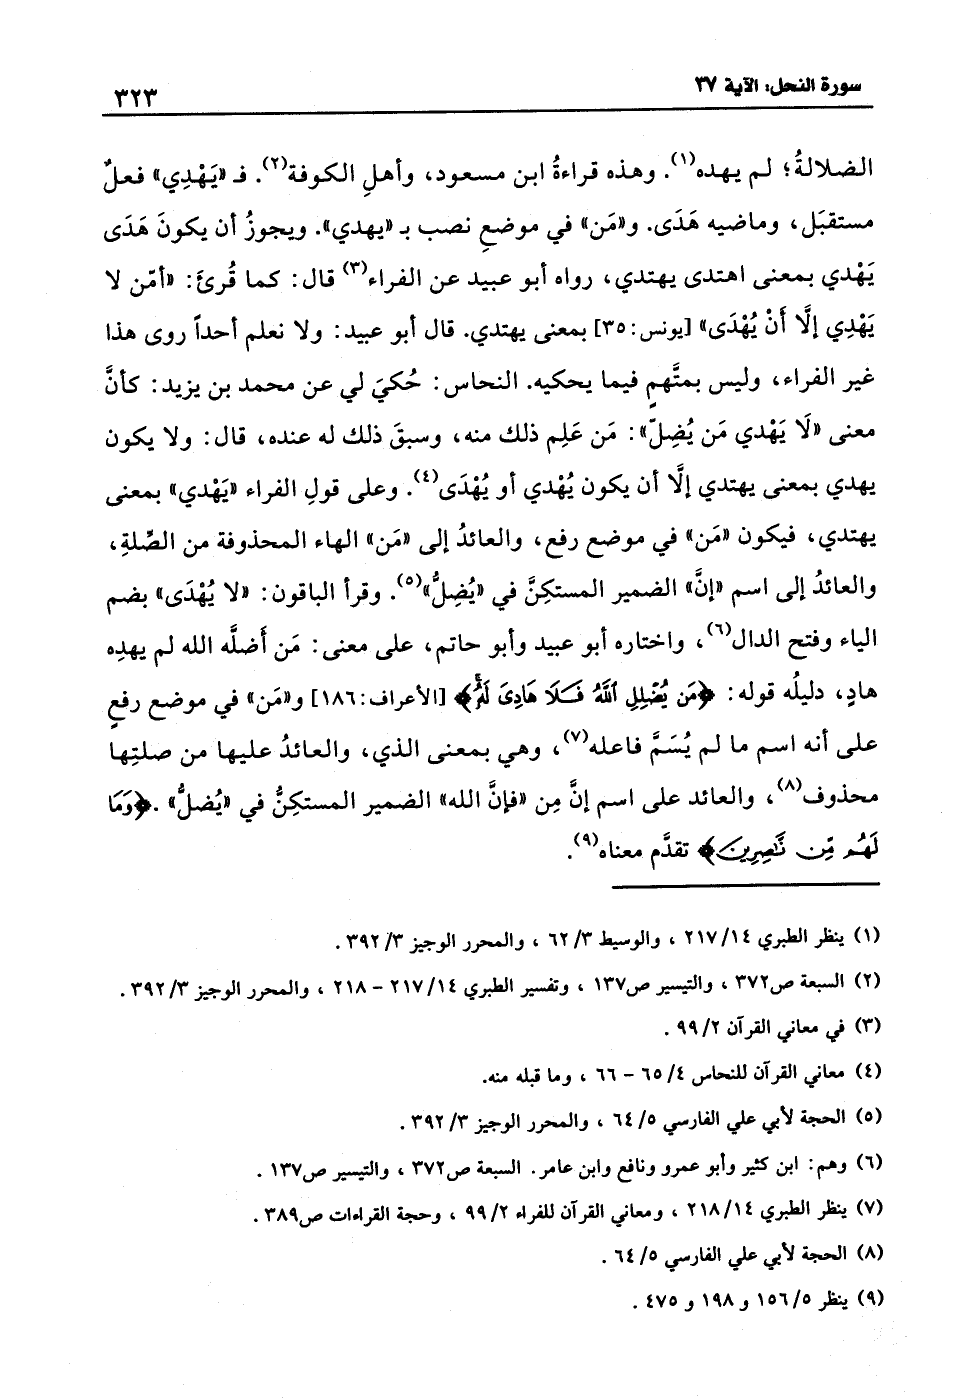 سورة النحل: الآية ٣٧
٣٢٣
الضلالةُ؛ لم يهده(١). وهذه قراءةُ ابن مسعود، وأهلِ الكوفة(٢). فـ «يَهْدِي» فعلٌ
مستقبَل، وماضيه هَدَى. و«مَن» في موضعِ نصب بـ «يهدي». ويجوزُ أن يكونَ هَدَى
يَهْدِي بمعنى اهتدى يهتدي، رواه أبو عبيد عن الفراء(٣) قال: كما قُرئَ: «أمّن لا
يَهْدِي إلَّا أَنْ يُهْدَى» [يونس: ٣٥] بمعنى يهتدي. قال أبو عبيد: ولا نعلم أحداً روى هذا
غير الفراء، وليس بمتَّهمٍ فيما يحكيه. النحاس: حُكيَ لي عن محمد بن يزيد: كأنَّ
معنى «لَا يَهْدي مَن يُضِلّ»: مَن عَلِم ذلك منه، وسبقَ ذلك له عنده، قال: ولا يكون
يهدي بمعنى يهتدي إلَّا أن يكون يُهْدي أو يُهْدَى(٤). وعلى قولِ الفراء «يَهْدي» بمعنى
يهتدي، فيكون «مَن» في موضع رفع، والعائدُ إلى «مَن» الهاء المحذوفة من الصِّلةِ،
والعائدُ إلى اسم «إنَّ» الضمير المستكِنَّ في «يُضِلُّ»(٥). وقرأ الباقون: «لا يُهْدَى» بضم
الياء وفتح الدال(٦)، واختاره أبو عبيد وأبو حاتم، على معنى: مَن أَضلَّه الله لم يهدِه
هادٍ، دليلُه قوله: ﴿مَن يُضْلِلِ ٱللَّهُ فَلَا هَادِىَ لَهُۥ﴾ [الأعراف: ١٨٦] و«مَن» في موضع رفعٍ
على أنه اسم ما لم يُسَمَّ فاعله(٧)، وهي بمعنى الذي، والعائدُ عليها من صلتِها
محذوف(٨)، والعائد على اسم إنَّ مِن «فإنَّ الله» الضمير المستكِنُّ في «يُضلُّ». ﴿وَمَا
لَهُم مِّن نَّٰصِرِينَ﴾ تقدَّم معناه(٩).
(١) ينظر الطبري ١٤/ ٢١٧ ، والوسيط ٣/ ٦٢ ، والمحرر الوجيز ٣/ ٣٩٢ .
(٢) السبعة ص٣٧٢ ، والتيسير ص١٣٧ ، وتفسير الطبري ١٤/ ٢١٧ – ٢١٨ ، والمحرر الوجيز ٣/ ٣٩٢ .
(٣) في معاني القرآن ٢/ ٩٩ .
(٤) معاني القرآن للنحاس ٤/ ٦٥ – ٦٦ ، وما قبله منه.
(٥) الحجة لأبي علي الفارسي ٥/ ٦٤ ، والمحرر الوجيز ٣/ ٣٩٢ .
(٦) وهم: ابن كثير وأبو عمرو ونافع وابن عامر. السبعة ص٣٧٢ ، والتيسير ص١٣٧ .
(٧) ينظر الطبري ١٤/ ٢١٨ ، ومعاني القرآن للفراء ٢/ ٩٩ ، وحجة القراءات ص٣٨٩ .
(٨) الحجة لأبي علي الفارسي ٥/ ٦٤ .
(٩) ينظر ٥/ ١٥٦ و ١٩٨ و ٤٧٥ .